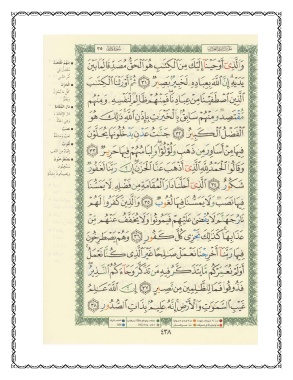 وَالَّذِي أَوْحَيْنَا إِلَيْكَ مِنَ الْكِتَابِ هُوَ الْحَقُّ مُصَدِّقًا لِمَا بَيْنَ
يَدَيْهِ إِنَّ اللَّهَ بِعِبَادِهِ لَخَبِيرٌ بَصِيرٌ ٣١ ثُمَّ أَوْرَثْنَا الْكِتَابَ
الَّذِينَ اصْطَفَيْنَا مِنْ عِبَادِنَا فَمِنْهُمْ ظَالِمٌ لِنَفْسِهِ وَمِنْهُمْ
مُقْتَصِدٌ وَمِنْهُمْ سَابِقٌ بِالْخَيْرَاتِ بِإِذْنِ اللَّهِ ذَلِكَ هُوَ
الْفَضْلُ الْكَبِيرُ ٣٢ جَنَّاتُ عَدْنٍ يَدْخُلُونَهَا يُحَلَّوْنَ
فِيهَا مِنْ أَسَاوِرَ مِنْ ذَهَبٍ وَلُؤْلُؤًا وَلِبَاسُهُمْ فِيهَا حَرِيرٌ ٣٣
وَقَالُوا الْحَمْدُ لِلَّهِ الَّذِي أَذْهَبَ عَنَّا الْحَزَنَ إِنَّ رَبَّنَا لَغَفُورٌ
شَكُورٌ ٣٤ الَّذِي أَحَلَّنَا دَارَ الْمُقَامَةِ مِنْ فَضْلِهِ لَا يَمَسُّنَا
فِيهَا نَصَبٌ وَلَا يَمَسُّنَا فِيهَا لُغُوبٌ ٣٥ وَالَّذِينَ كَفَرُوا لَهُمْ
نَارُ جَهَنَّمَ لَا يُقْضَى عَلَيْهِمْ فَيَمُوتُوا وَلَا يُخَفَّفُ عَنْهُمْ مِنْ
عَذَابِهَا كَذَلِكَ نَجْزِي كُلَّ كَفُورٍ ٣٦ وَهُمْ يَصْطَرِخُونَ
فِيهَا رَبَّنَا أَخْرِجْنَا نَعْمَلْ صَالِحًا غَيْرَ الَّذِي كُنَّا نَعْمَلُ
أَوَلَمْ نُعَمِّرْكُمْ مَا يَتَذَكَّرُ فِيهِ مَنْ تَذَكَّرَ وَجَاءَكُمُ النَّذِيرُ
فَذُوقُوا فَمَا لِلظَّالِمِينَ مِنْ نَصِيرٍ ٣٧ إِنَّ اللَّهَ عَالِمُ
غَيْبِ السَّمَاوَاتِ وَالْأَرْضِ إِنَّهُ عَلِيمٌ بِذَاتِ الصُّدُورِ ٣٨
٤٣٨